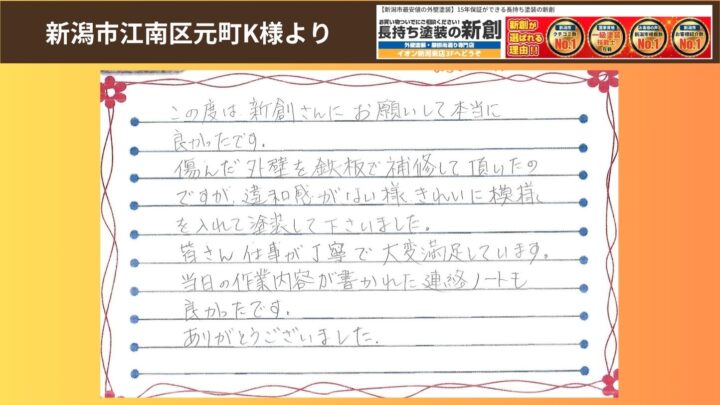 新潟市江南区元町K様より
【新潟市最安値の外壁塗装】15年保証ができる長持ち塗装の新創
お買い物ついでにご相談ください!
長持ち塗装の新創
外壁塗装・屋根雨漏り専門店
イオン新潟東店2Fへどうぞ
新創が
選ばれる
理由!!
新潟市
クチコミ数
NO.1
国家資格
一級塗装
技能士
在籍
お客様の声
NO.1
新潟市
NO.1
NO.1
この度は新創さんにお願いして本当に
良かったです.
傷んだ外壁を鉄板で補修して頂いたの
ですが、違和感がない様、きれいに模様
を入れて塗装して下さいました。
皆さん仕事が丁寧で大変満足しています。
当日の作業内容が書かれた連絡ノートも
良かったです.
ありがとうございました.